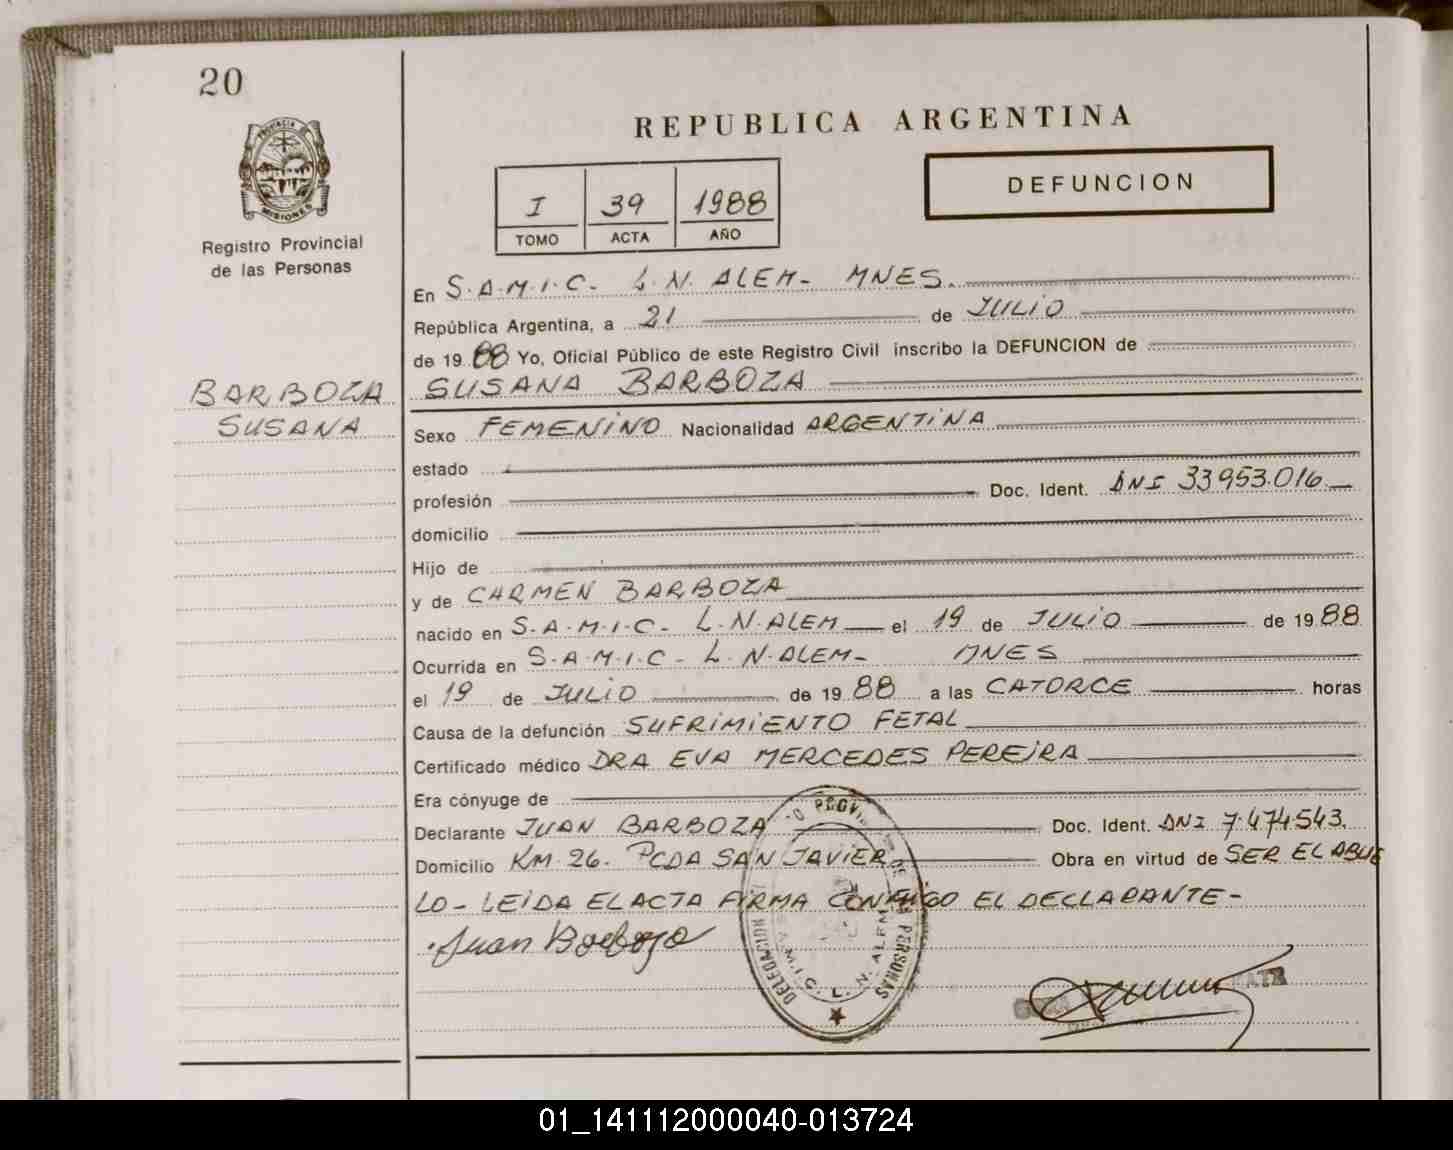 20
REPUBLICA ARGENTINA
PROVINCIA DE
MISIONES
Registro Provincial
de las Personas
I 39 1988
TOMO ACTA AÑO
DEFUNCION
En S.A.M.I.C- L.N. ALEM- MNES.
República Argentina, a 21 de JULIO
de 1988 Yo, Oficial Público de este Registro Civil inscribo la DEFUNCION de
BARBOZA
SUSANA
SUSANA BARBOZA
Sexo FEMENINO Nacionalidad ARGENTINA
estado
profesión Doc. Ident. DNI 33953.016
domicilio
Hijo de
y de CARMEN BARBOZA
nacido en S.A.M.I.C- L.N.ALEM el 19 de JULIO de 1988
Ocurrida en S.A.M.I.C- L.N.ALEM- MNES
el 19 de JULIO de 1988 a las CATORCE horas
Causa de la defunción SUFRIMIENTO FETAL
Certificado médico DRA EVA MERCEDES PEREIRA
Era cónyuge de
Declarante JUAN BARBOZA Doc. Ident. DNI 7.474543.
Domicilio KM 26. PCDA SAN JAVIER Obra en virtud de SER EL ABUE
LO- LEIDA EL ACTA FIRMA CONMIGO EL DECLARANTE-
Juan Barboza
DELEGACION
PERSONAS
L. N. ALEM
01_141112000040-013724